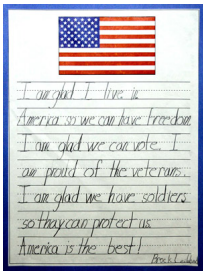 I am glad I live in
America so we can have freedom
I am glad we can vote. I
am proud of the veterans.
I am glad we have soldiers
so thay can protect us
America is the best!
Brock